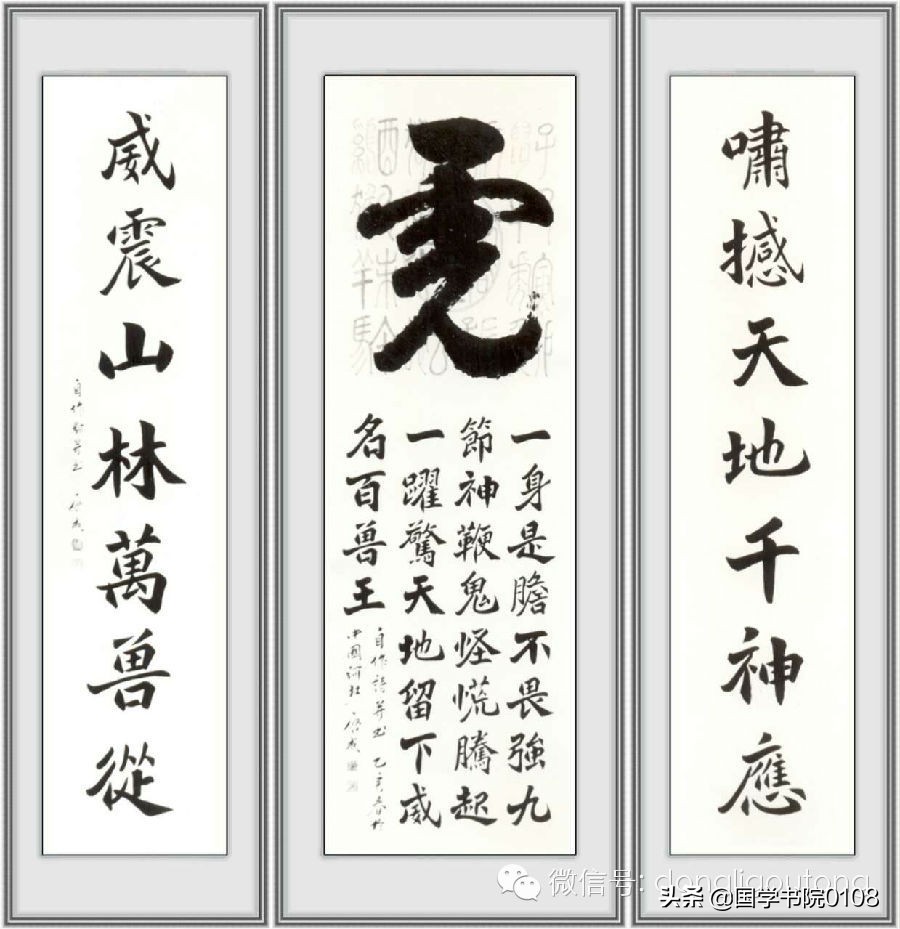 嘯撼天地千神應
虎
一身是膽不畏強九
節神鞭鬼怪慌騰起
一躍驚天地留下威
名百兽王
自作詩并书乙亥春於
威震山林萬兽從
微信号: dongligoutong
头条 @国学书院0108